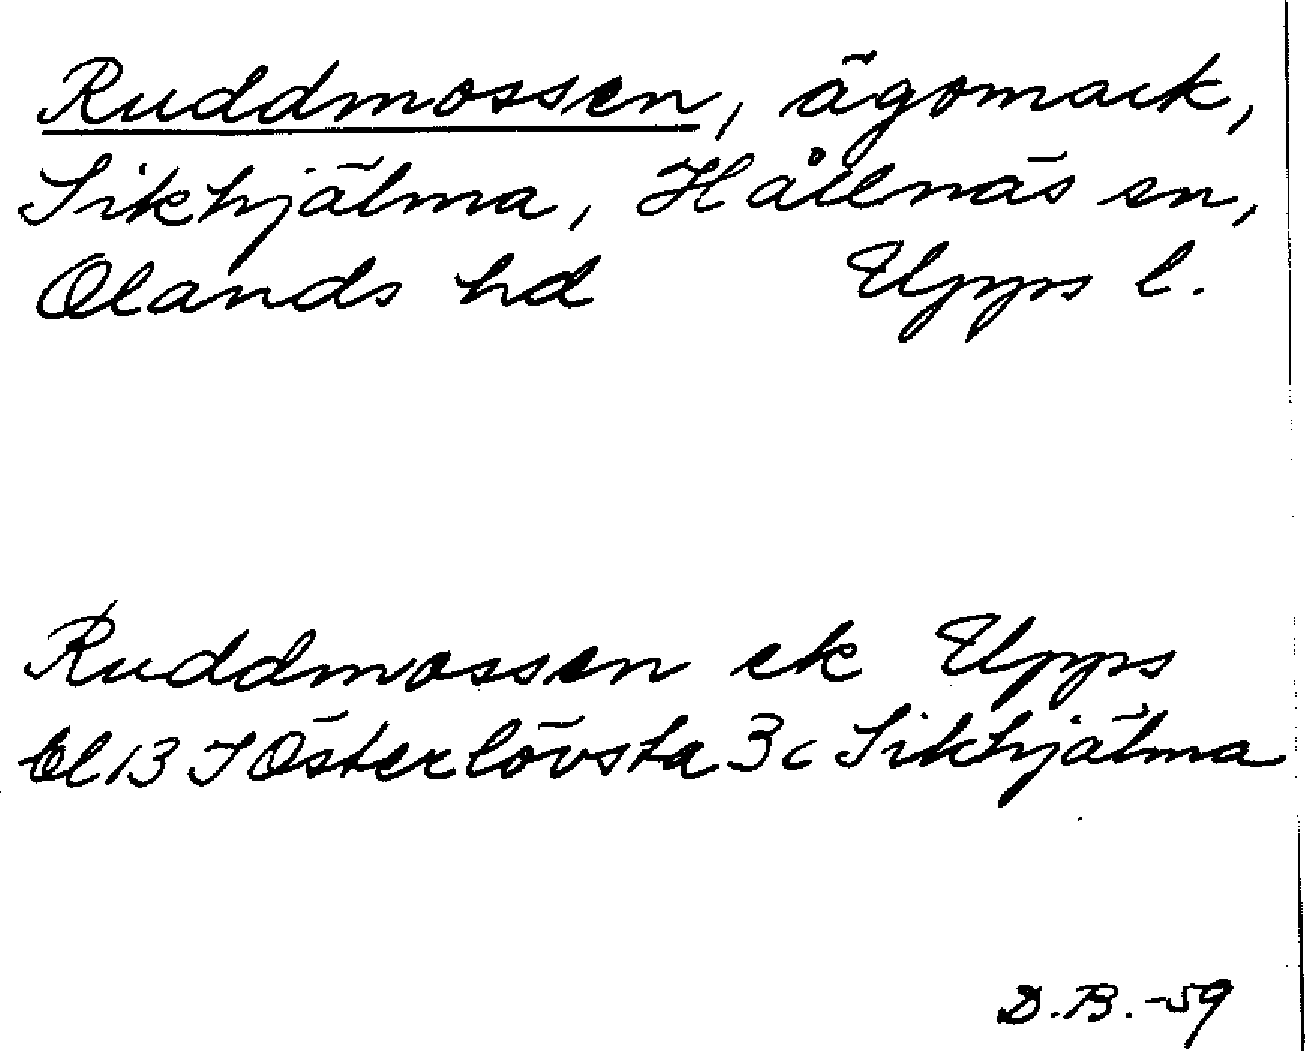 Ruddmossen, ägomark,
Sikhjälma, Hållnäs sn,
Olands hd Upps l.
Ruddmossen ek Upps
Ol 13 I Österlövsta 3c Sikhjälma
D.B.-59